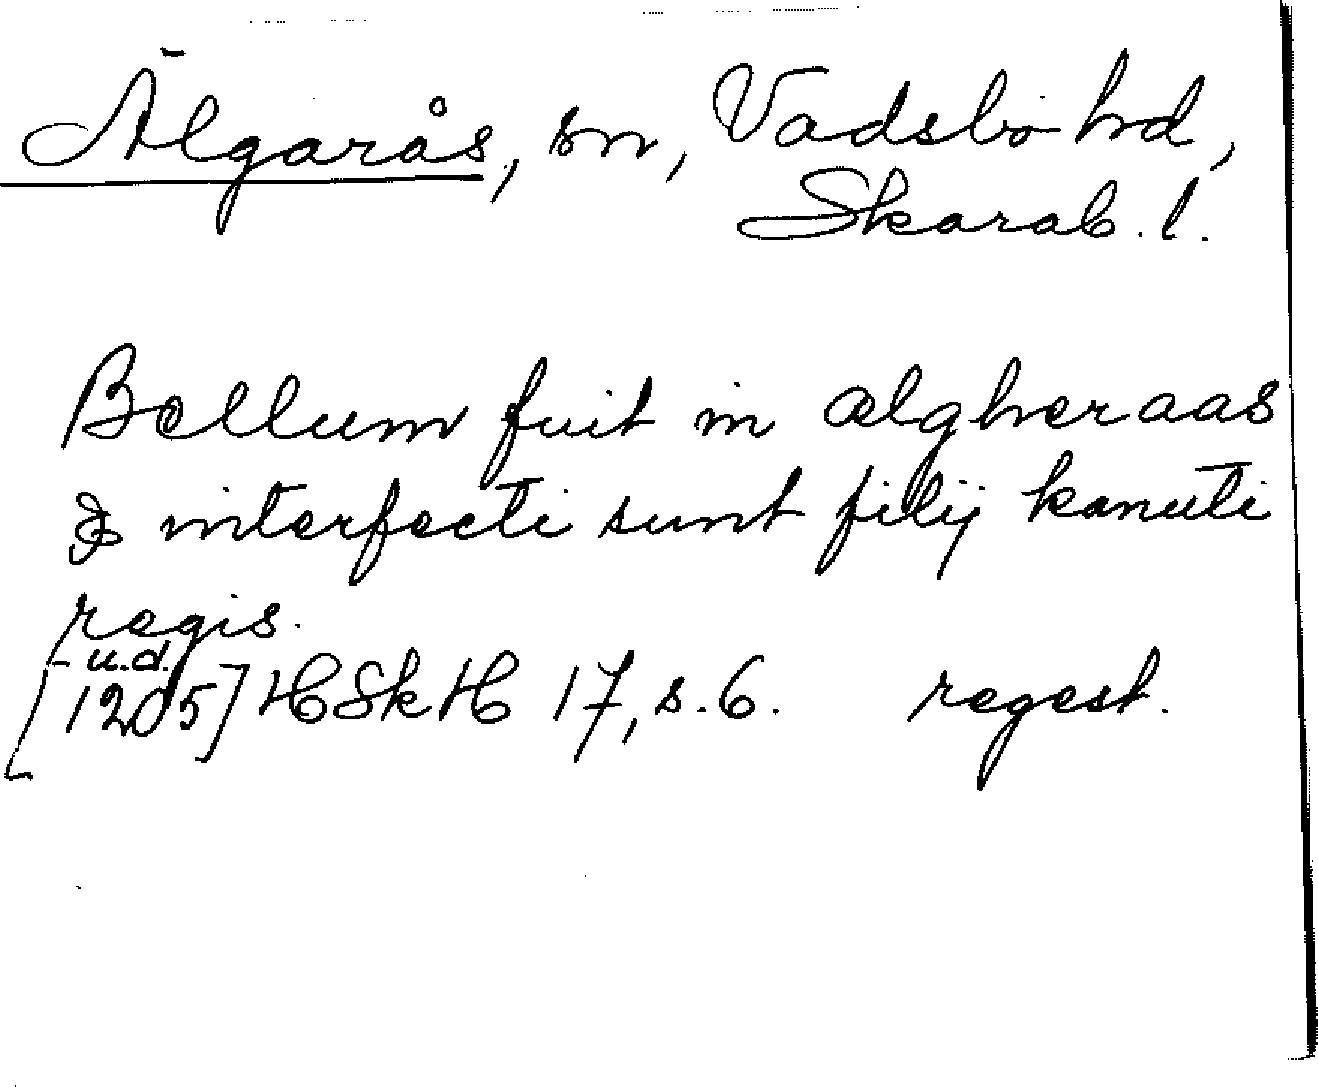 Älgarås, sn, Vadsbo hd,
Skarab. l.
Bellum fuit in ælgheraas
& interfecti sunt filij kanuti
regis.
u.d.
[1205] HSkH 17, s. 6. regest.